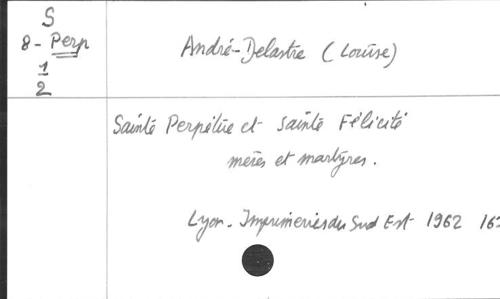 S
8 - Perp
1
2
André-Delastre (Louise)
Sainte Perpétue et Sainte Félicité
mères et martyres.
Lyon - Imprimeries du Sud Est 1962